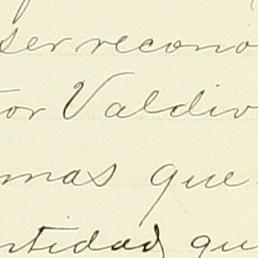 ser recono
tor Valdiv
mas que
ntidad qu